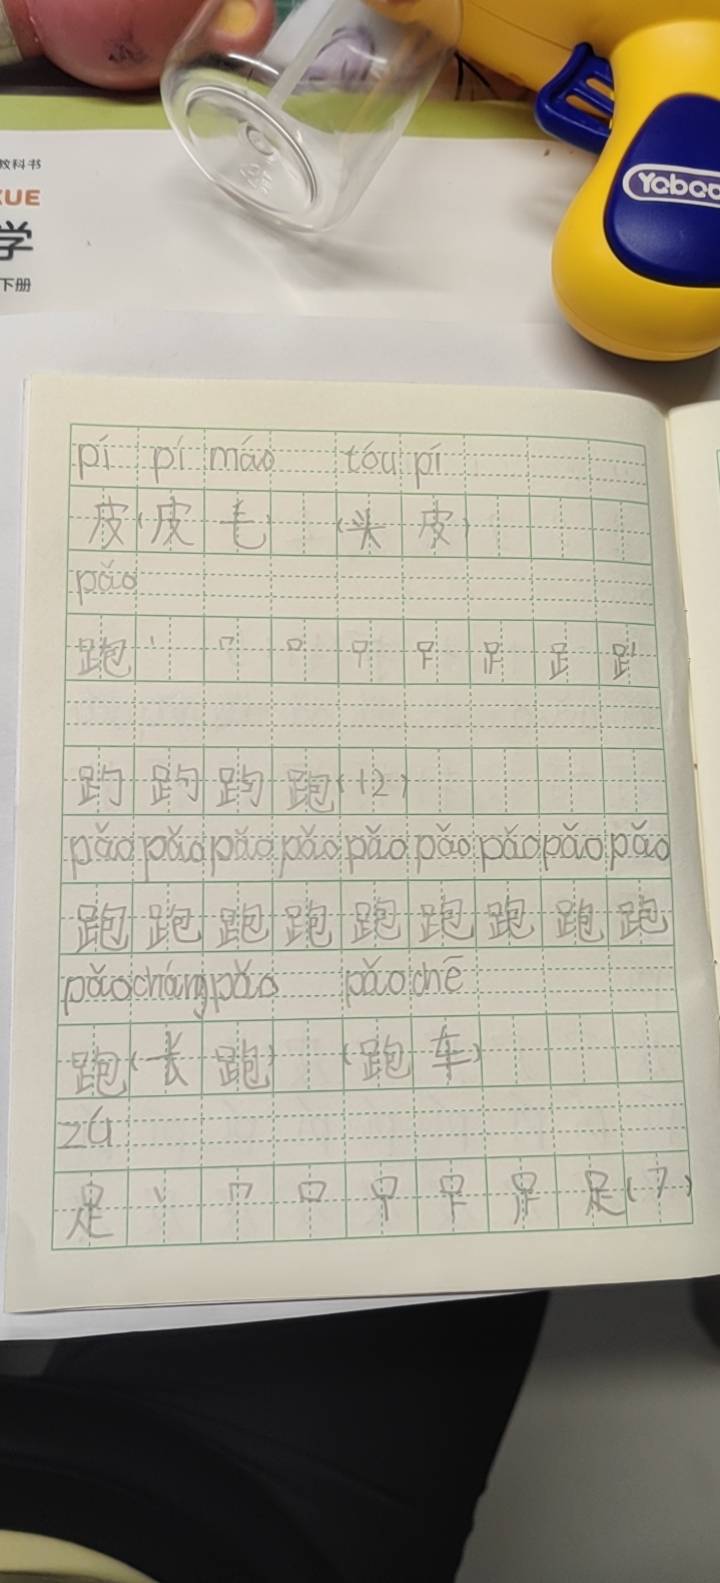 教科书
XUE
学
下册
Yaboo
pí pí máo tóu pí
皮(皮毛) (头皮)
pǎo
跑 丶 𠃍 口 𠮛 
跑(12)
pǎo pǎo pǎo pǎo pǎo pǎo pǎo pǎo pǎo
跑 跑 跑 跑 跑 跑 跑 跑 跑
pǎo cháng pǎo pǎo chē
跑(长跑) (跑车)
zú
足 丨 𠃍 口 足(7)